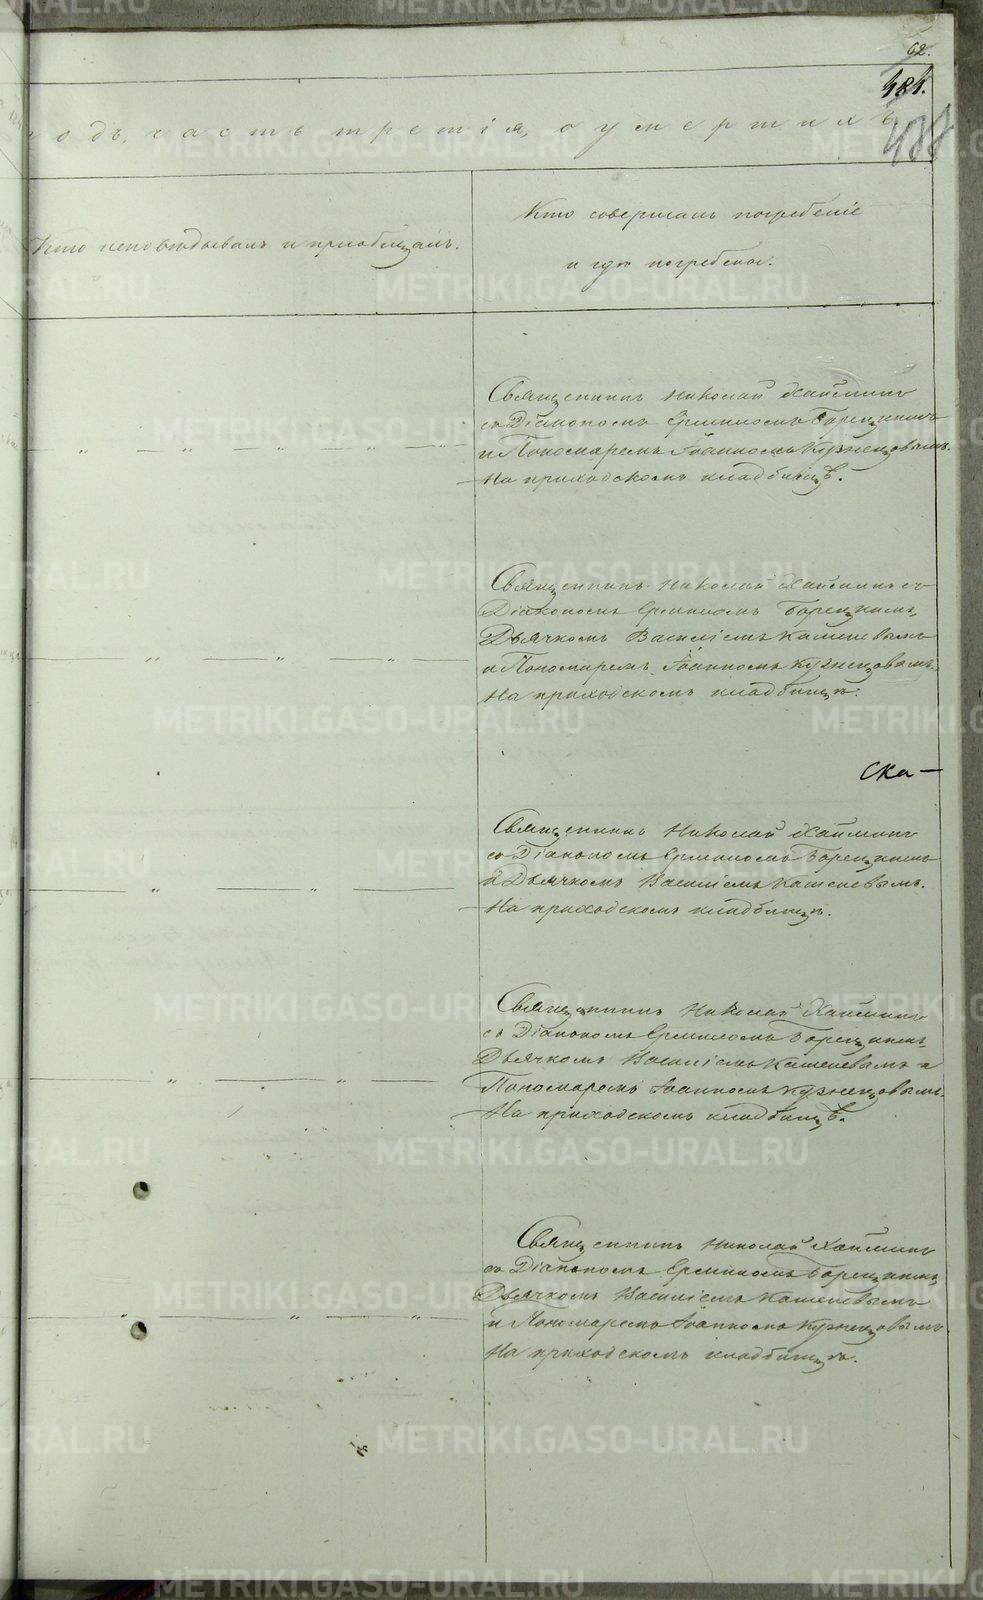 62.
481.
488
годъ, часть третія, о умершихъ
Кто исповѣдывалъ и пріобщалъ.
Кто совершалъ погребеніе
и гдѣ погребены.
Священникъ Николай Хаймин
съ Діакономъ Ермиломъ Борецкимъ
и Пономаремъ Іоанномъ Кузнецовымъ.
На приходскомъ кладбищѣ.
Священникъ Николай Хайминъ съ
Діакономъ Ермиломъ Борецкимъ,
Дьячкомъ Василіемъ Кашеневымъ
и Пономаремъ Іоанномъ Кузнецовымъ.
На приходскомъ кладбищѣ.
ска-
Священникъ Николай Хайминъ
съ Діакономъ Ермиломъ Борецкимъ
и Дьячкомъ Василіемъ Кашеневымъ.
На приходскомъ кладбищѣ.
Священникъ Николай Хайминъ
съ Діакономъ Ермиломъ Борецкимъ,
Дьячкомъ Василіемъ Кашеневымъ и
Пономаремъ Іоанномъ Кузнецовымъ.
На приходскомъ кладбищѣ.
Священникъ Николай Хайминъ
съ Діакономъ Ермиломъ Борецкимъ,
Дьячкомъ Василіемъ Кашеневымъ
и Пономаремъ Іоанномъ Кузнецовымъ
На приходскомъ кладбищѣ.
METRIKI.GASO-URAL.RU